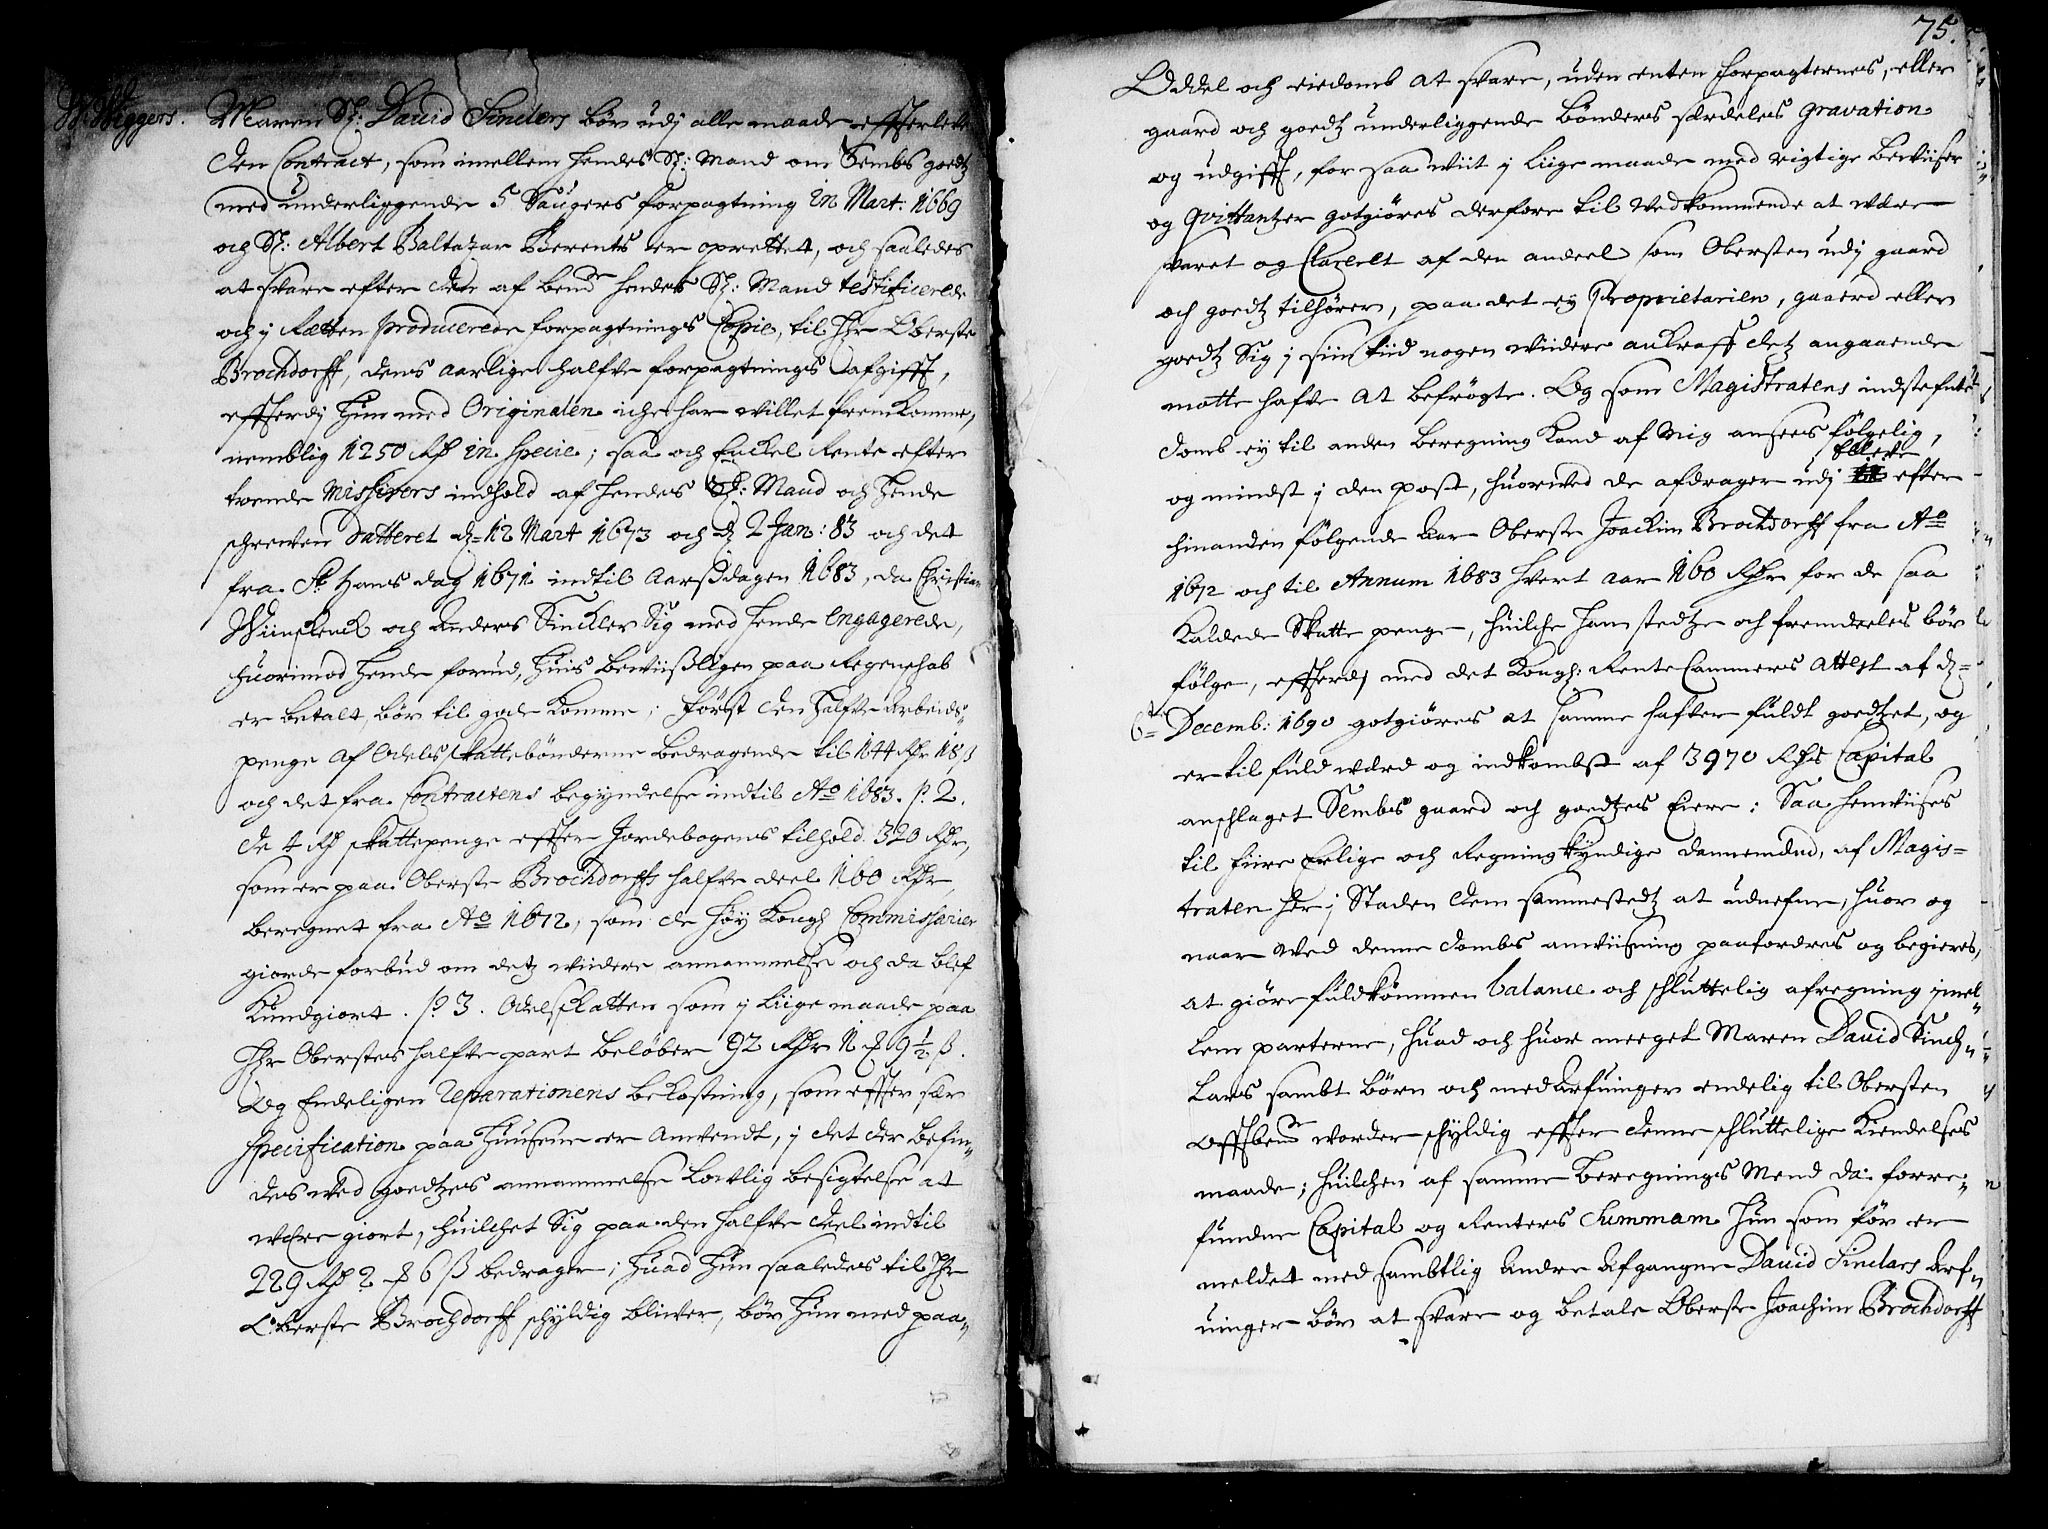 W: Wiggers.
Maren Sl: David Sinclers bør udj alle maade effterleve
den Contract, som imellem hendes Sl: Mand om Sembs goedtz
med underliggende 5 Saugers forpagtning in Mart: 1669
och Sl: Albert Baltazar Berents er oprettet, och saaledes
at svare efter den af bemte hendes Sl: Mand testificerede
och j Retten producerede forpagtnings Copie, til Hr Oberste
Brochdorff, dens aarlige halfve forpagtnings afgifft,
effterdj hun med Originalen iche har willet fremkomme,
nemblig 1250 Rd in specie; saa och Enckel Rente efter
tvende Missivers indhold af hendes Sl: Mand och hende
schreven Datteret d= 12 Mart 1673 och d 2 Jan: 83 och det
fra St Hans dag 1671 indtil Aarssdagen 1683, da Christian
Wiinschenck och Anders Sincler Sig med hende engagerede,
huorimod hende forud, huis beviissligen paa Regenschab
er betalt, bør til gode komme; først den halfve Arbeids-
penge af Odels skattebønderne bedragende til 144 Rdr 18 ß
och det fra Contractens begyndelse indtil Ao 1683. P: 2.
de 4 Rd skattepenge effter Jordebogens tilhold 320 Rdr,
som er paa Oberste Brochdorffs halfve deel 160 Rdr,
beregnet fra Ao 1672, som de høy Kongl Commissarier
giorde forbud om detz widere annammelse och da blef
kundgiort. P: 3. Odelsskatten som j liige maade paa
Hr Oberstes halfve part beløber 92 Rdr 1 ₰ 9½ ß.
Og Endeligen Reparationens bekostning, som effter sær
specification paa Huusene er Anvendt, j det der befin-
des ved goedtzes annammelse Lovlig besigtelse at
være giort, huilchet Sig paa den halfve deel indtil
229 Rd 2 ₰ 6 ß bedrager; huad hun saaledes til Hr
Oberste Brochdorff schyldig bliver, bør hun med paa-
75.
Oddel och eiedomb at svare, uden enten forpagternes, eller
gaard och goedtz underliggende bønders særdeles gravation
og udgifft, for saa wiit j liige maade med rigtige beviiser
og qvittantzer gotgiøres derfore til vedkommende at være
svaret og Clareret af den andeel som Obersten udj gaard
och goedtz tilhører, paa det ey Proprietarien, gaard eller
goedtz Sig j siin tiid nogen wiidere ankraff detz angaaende
motte hafve at befrøgte. Og som Magistratens indstefnte
domb ey til anden beregning kand af mig ansees følgelig,
og mindst j den post, huorved de afdrager udj Elleve efter
hinanden følgende Aar Oberste Joachim Brochdorff fra Ao
1672 och til Annum 1683 hvert aar 160 Rdr for de saa
kaldede Skatte penge, huilche ham stedtze och fremdeeles bør
følge, effterdj med det Kongl: Rente Cammers attest af d=
6te Decemb: 1690 gotgiøres at samme hafver fuldt goedtzet, og
er til fuld værd og indkombst af 3970 Rdrs Capital
anschlaget Sembs gaard och goedtzes Eiere: Saa henviises
til fiire Erlige och Regningskyndige dannemænd, af Magis=
traten her j Staden dem sammestedtz at udnefne, huor og
naar Ved denne dombs anviisning paafordres og begieres,
at giøre fuldkommen balance och schluttelig afregning imel-
lem parterne, huad och huor meeget Maren David Sinch-
lars sambt børn och medarfvinger endelig til Obersten
Offtbemte worder schyldig effter denne schluttelige Kiendelses
maade; huilchen af samme beregnings Mend da forre-
fundne Capital og Renters Summam hun som før er
meldet med sambtlig andre Afgangne David Sinclars Arf-
vinger bør at svare og betale Oberste Joachim Brochdorff